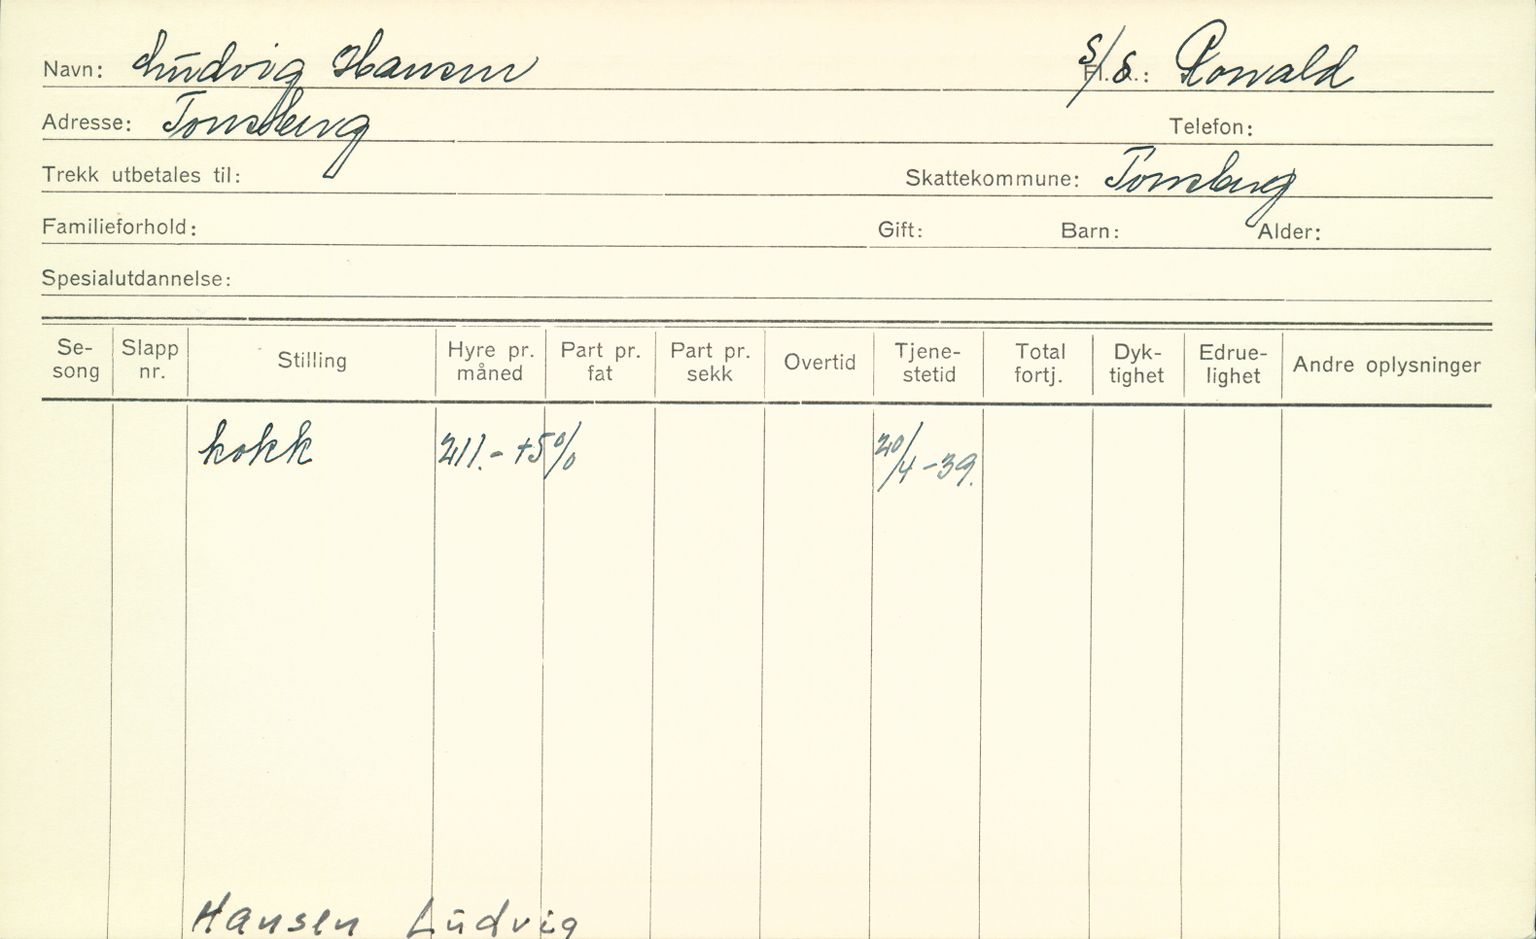 Navn: Ludvig Hansen S/S. Ronald
Adresse: Tønsberg Telefon:
Trekk utbetales til: Skattekommune: Tønsberg
Familieforhold: Gift: Barn: Alder:
Spesialutdannelse:
Se-song Slapp nr. Stilling Hyre pr. måned Part pr. fat Part pr. sekk Overtid Tjene-stetid Total fortj. Dyk-tighet Edrue-lighet Andre oplysninger
kokk 211.- +5% 20/4-39.
Hansen Ludvig